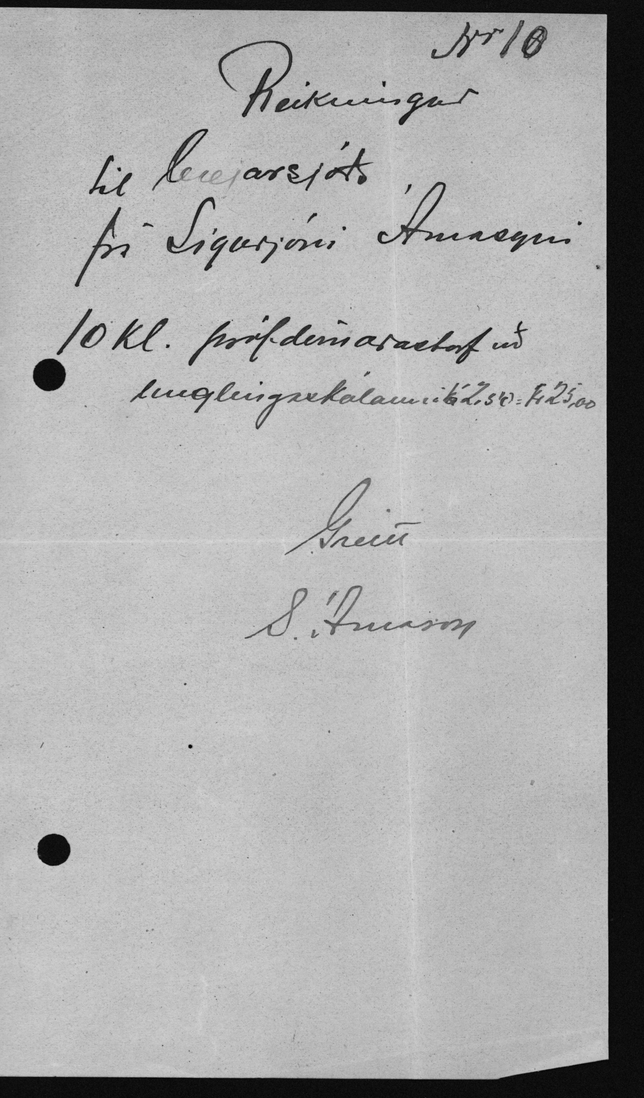 Nr 10
Reikningur
til bæjarsjóðs
frá Sigurjóni Árnasyni
10 kl. prófdómarastarf við
unglingaskólann á 2,50 = kr 25,00
Greitt
S. Árnason